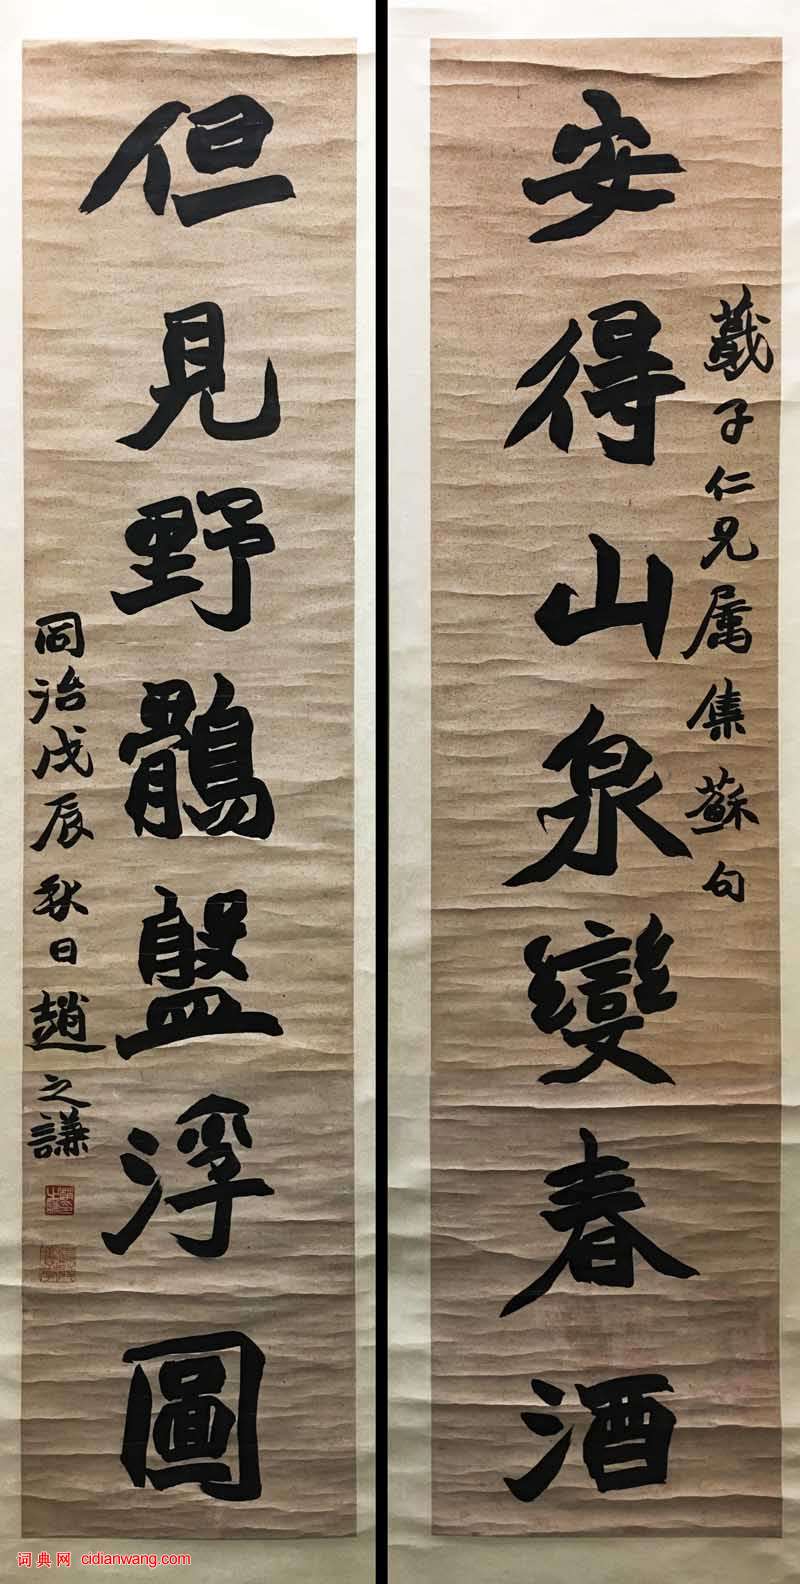 蕺子仁兄属集蘇句
安得山泉變春酒
但見野鶻盤浮圖
同治戊辰秋日趙之謙
词典网 cidianwang.com